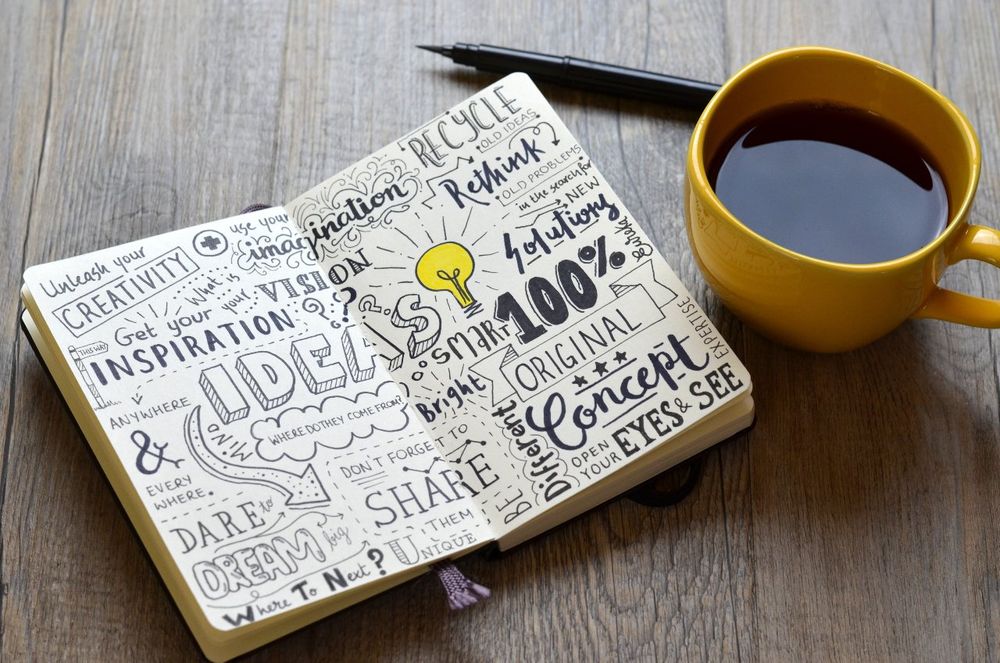 Unleash your
CREATIVITY
use your
imagination
What is
your
VISION?
Get your
INSPIRATION
THIS WAY
IDEAS
ANYWHERE
&
EVERY
WHERE.
MIND
WHERE DO THEY COME FROM?
DON'T FORGET TO
SHARE
THEM
DARE to
DREAM big
UNIQUE
Where To Next?
RECYCLE
OLD IDEAS
Rethink
OLD PROBLEMS
in the search for
NEW
Solutions
SMART
100%
Bright
ORIGINAL
Concept
EXPERTISE
BE
Different
OPEN
YOUR
EYES & SEE